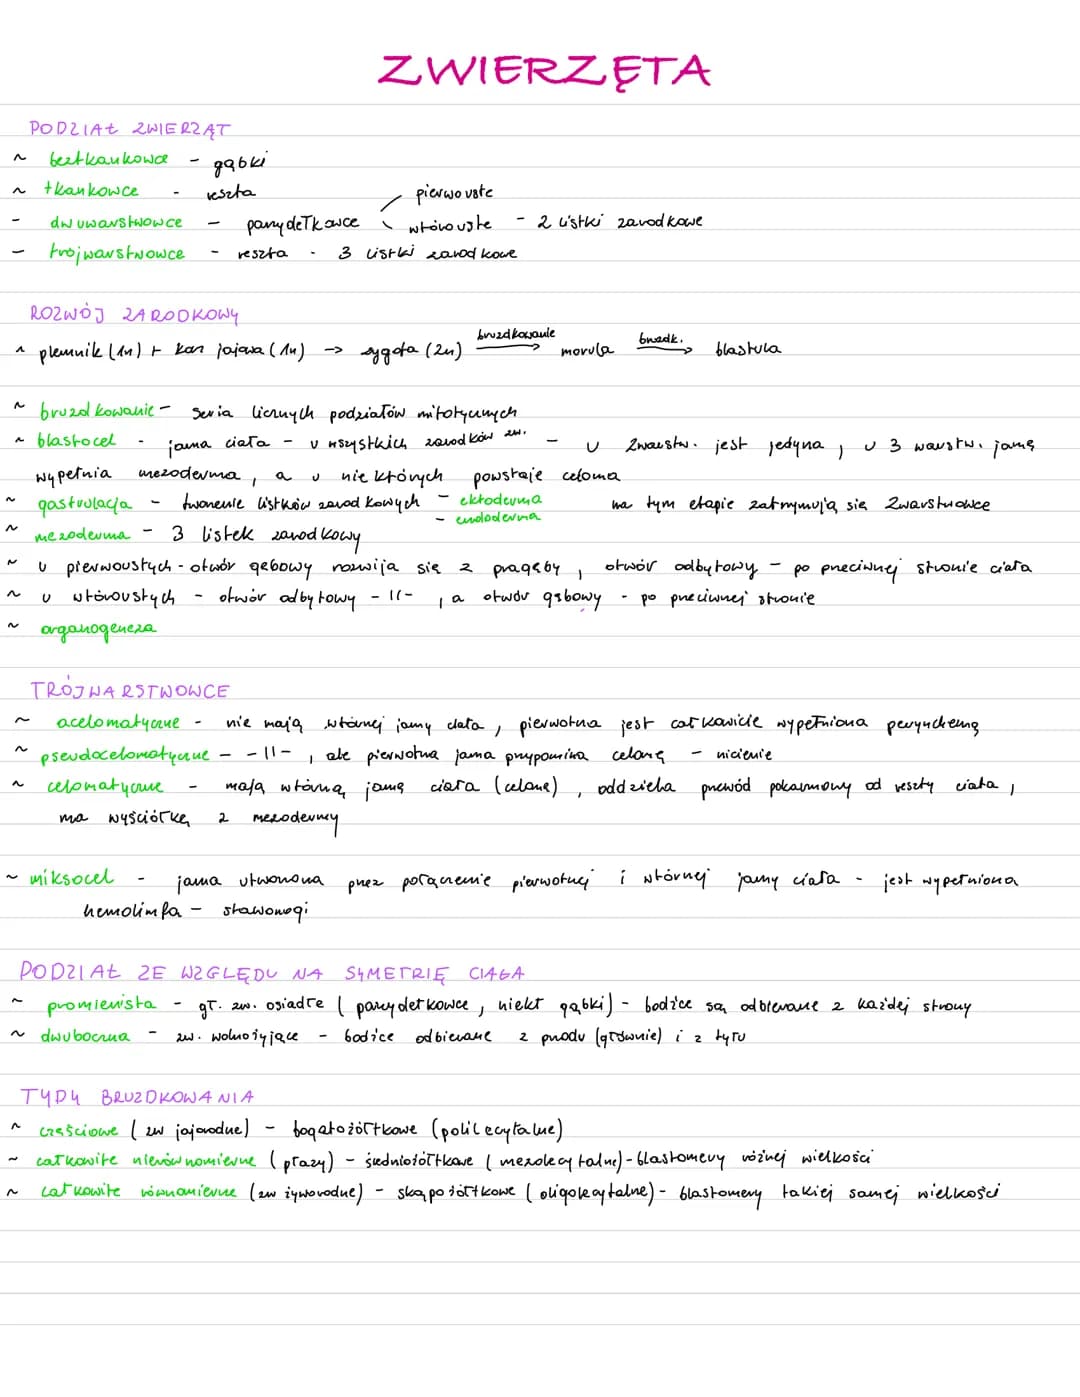 ZWIERZĘTA
PODZIAŁ ZWIERZĄT
~ beztkankowce - gąbki
~ tkankowce - reszta
pierwouste
- dwuwarstwowce - parzydełkowce
wtórouste - 2 listki zarodkowe
- trójwarstwowce - reszta - 3 listki zarodkowe
ROZWÓJ ZARODKOWY
~ plemnik (1n) + kom jajowa (1n) → zygota (2n) bruzdkowanie → morula bruzdk. → blastula
~ bruzdkowanie - seria licznych podziałów mitotycznych
~ blastocel - jama ciała - u wszystkich zarodków zw. - u 2warstw. jest jedyna, u 3 warstw. jamę
wypełnia mezoderma, a u niektórych powstaje celoma
~ gastrulacja - tworzenie listków zarodkowych - ektoderma na tym etapie zatrzymują się 2warstwowce
- endoderma
~ mezoderma - 3 listek zarodkowy
~ u pierwoustych - otwór gębowy rozwija się z pragęby, otwór odbytowy - po przeciwnej stronie ciała
~ u wtóroustych - otwór odbytowy -11-, a otwór gębowy - po przeciwnej stronie
~ organogeneza
TRÓJWARSTWOWCE
~ acelomatyczne - nie mają wtórnej jamy ciała, pierwotna jest całkowicie wypełniona perynchemą
~ pseudocelomatyczne - -11-, ale pierwotna jama przypomina celomę - nicienie
~ celomatyczne - mają wtórną jamę ciała (celomę), oddziela przewód pokarmowy od reszty ciała,
ma wyściółkę z mezodermy
~ miksocel - jama utworzona przez połączenie pierwotnej i wtórnej jamy ciała - jest wypełniona
hemolimfą - stawonogi
PODZIAŁ ZE WZGLĘDU NA SYMETRIĘ CIAŁA
~ promienista - gł. zw. osiadłe (parzydełkowce, niekt gąbki) - bodźce są odbierane z każdej strony
~ dwuboczna - zw. wolnożyjące - bodźce odbierane z przodu (głównie) i z tyłu
TYPY BRUZDKOWANIA
~ częściowe (zw jajorodne) - bogatożółtkowe (polilecytalne)
~ całkowite nierównomierne (płazy) - średniożółtkowe (mezolecytalne) - blastomery różnej wielkości
~ całkowite równomierne (zw żyworodne) - skąpożółtkowe (oligolecytalne) - blastomery takiej samej wielkości